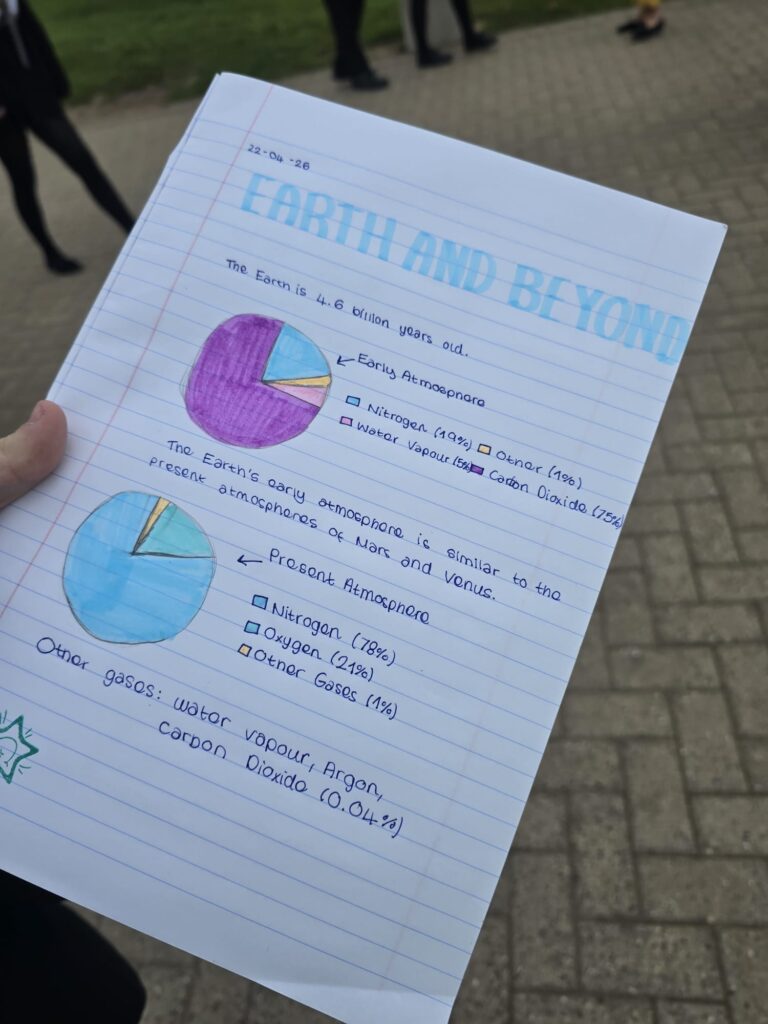 22-04-26
EARTH AND BEYOND
The Earth is 4.6 billion years old.
Early Atmosphere
Nitrogen (19%) Other (1%)
Water Vapour (5%) Carbon Dioxide (75%)
The Earth's early atmosphere is similar to the
present atmospheres of Mars and Venus.
Present Atmosphere
Nitrogen (78%)
Oxygen (21%)
Other Gases (1%)
Other gases: water vapour, Argon,
Carbon Dioxide (0.04%)